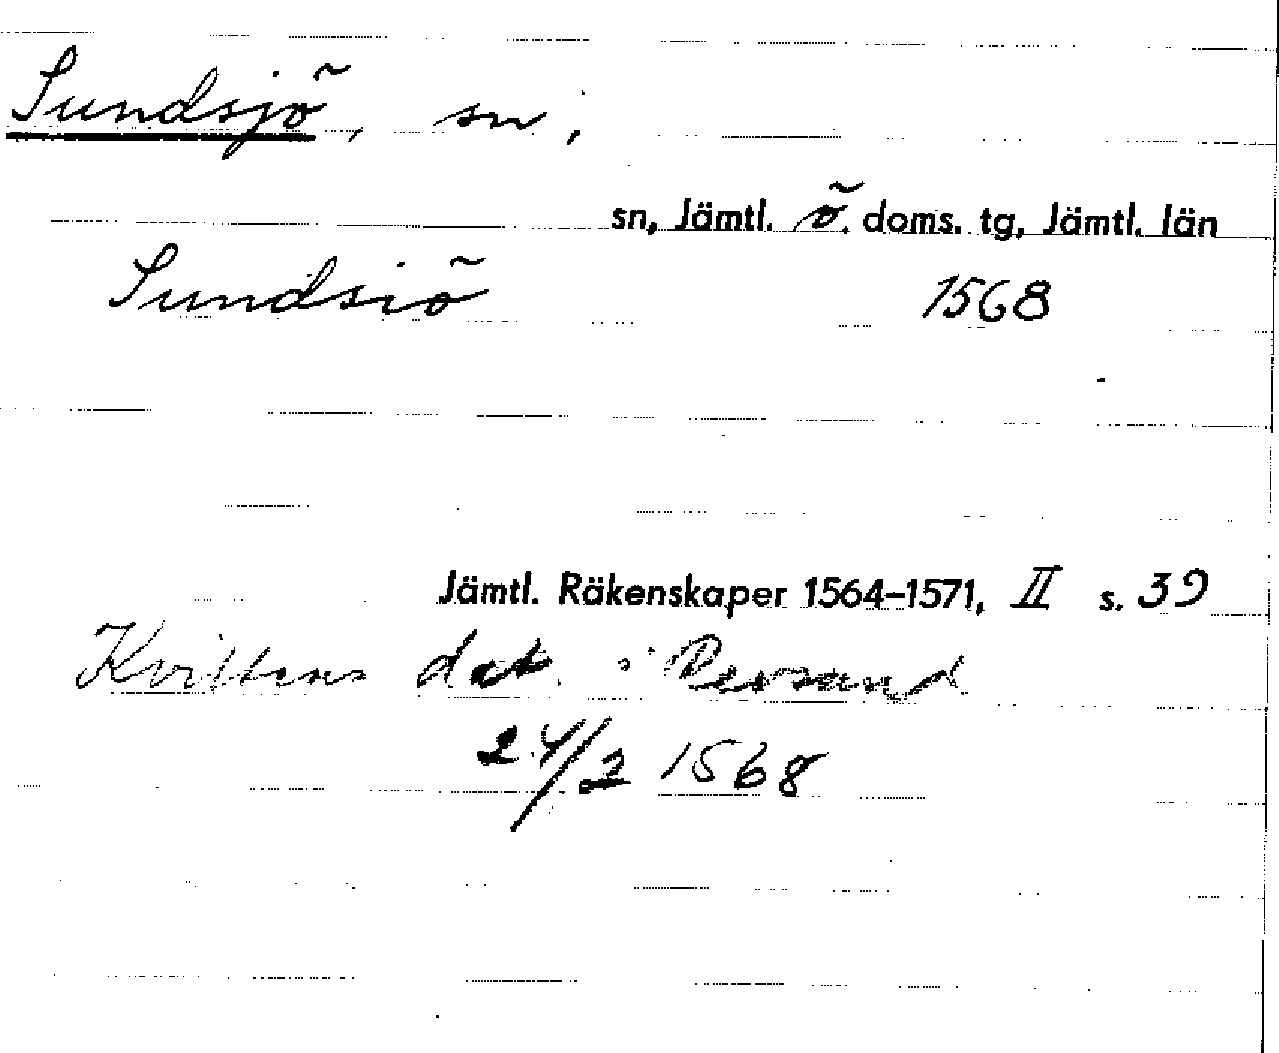 Sundsjö, sn,
sn, Jämtl. ö. doms. tg, Jämtl. län
Sundsiö 1568
Jämtl. Räkenskaper 1564–1571, II s. 39
Kvittens dat. i Revsund
24/2 1568